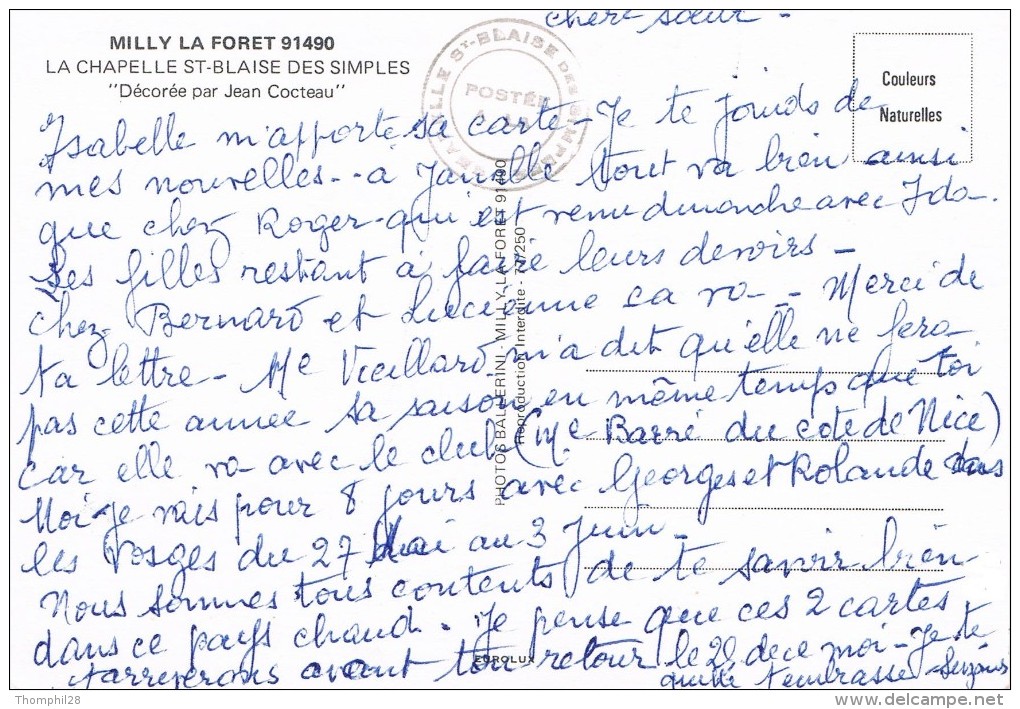 chère sœur -
MILLY LA FORET 91490
LA CHAPELLE ST-BLAISE DES SIMPLES
"Décorée par Jean Cocteau"
ST-BLAISE DES SIMPLES
POSTÉE
Couleurs
Naturelles
Isabelle m'apporte sa carte - Je te joinds de
mes nouvelles -. à Janville tout va bien ainsi
que chez Roger qui est venu dimanche avec Ida.
Les filles restant à faire leurs devoirs -
chez Bernard et Lucienne ca va - - Merci de
ta lettre - Me Vieillard m'a dit qu'elle ne fera
pas cette année sa saison en même temps que toi
car elle va avec le club (Me Barré du cote de Nice)
Moi-je vais pour 8 jours avec Georges et Rolande dans
les Vosges du 27 Mai au 3 Juin -
Nous sommes tous contents de te savoir bien
dans ce pays chaud. Je pense que ces 2 cartes
t'arriverons avant ton retour le 29 de ce moi - Je te
quitte t'embrasse -
PHOTOS BALLERINI - MILLY LA FORET 91490
Reproduction Interdite - 77/250
EUROLUX
Thomphil28
delcampe.net